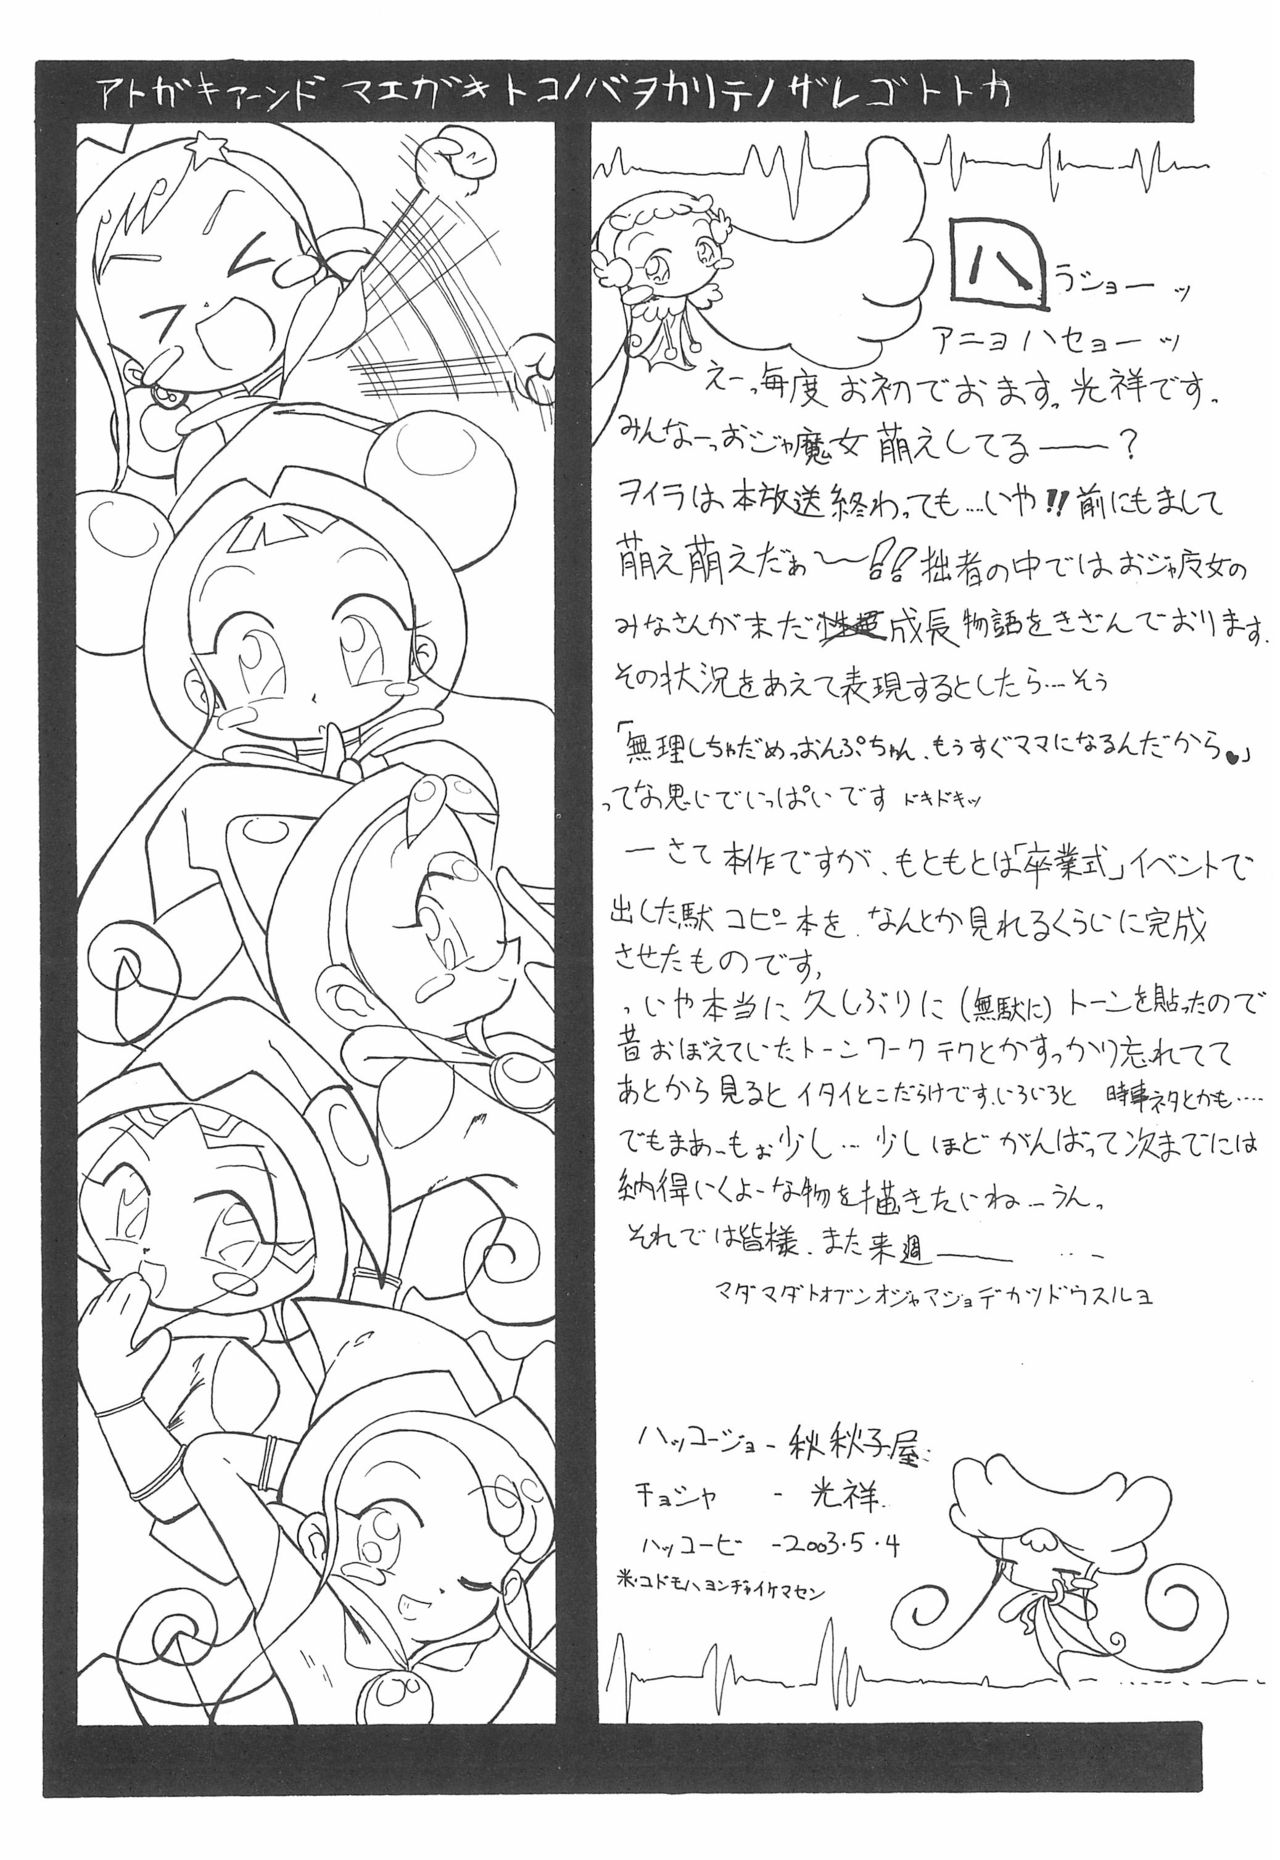 アトガキアーンド マエガキトコノバヲカリテノザレゴトトカ
ハラショーッ
アニョハセョーッ
えーっ毎度お初でおます。光祥です。
みんなーっおジャ魔女萌えしてるー？
ヲイラは本放送終わっても....いや!!前にもまして
萌え萌えだぁ〜!!拙者の中ではおジャ魔女の
みなさんが未だ成長物語をきざんでおります。
その状況をあえて表現するとしたら....そう
「無理しちゃだめっおんぷちゃん、もうすぐママになるんだから♥」
ってな感じでいっぱいです ドキドキッ
ーさて本作ですが、もともとは「卒業式」イベントで
出した駄コピー本を、なんとか見れるくらいに完成
させたものです。
っいや本当に久しぶりに(無駄に)トーンを貼ったので
昔おぼえていたトーンワークテクとかすっかり忘れてて
あとから見るとイタイとこだらけです。いろいろと 時事ネタとかも....
でもまあーもぉ少し...少しほどがんばって次までには
納得いくよーな物を描きたいねーうん。
それでは皆様、また来週ー ...ー
マダマダトオブンオジャマジョデカツドウスルヨ
ハッコージョー秋秋子屋
チョシャ - 光祥
ハッコービ -2003・5・4
米・コドモハヨンヂャイケマセン